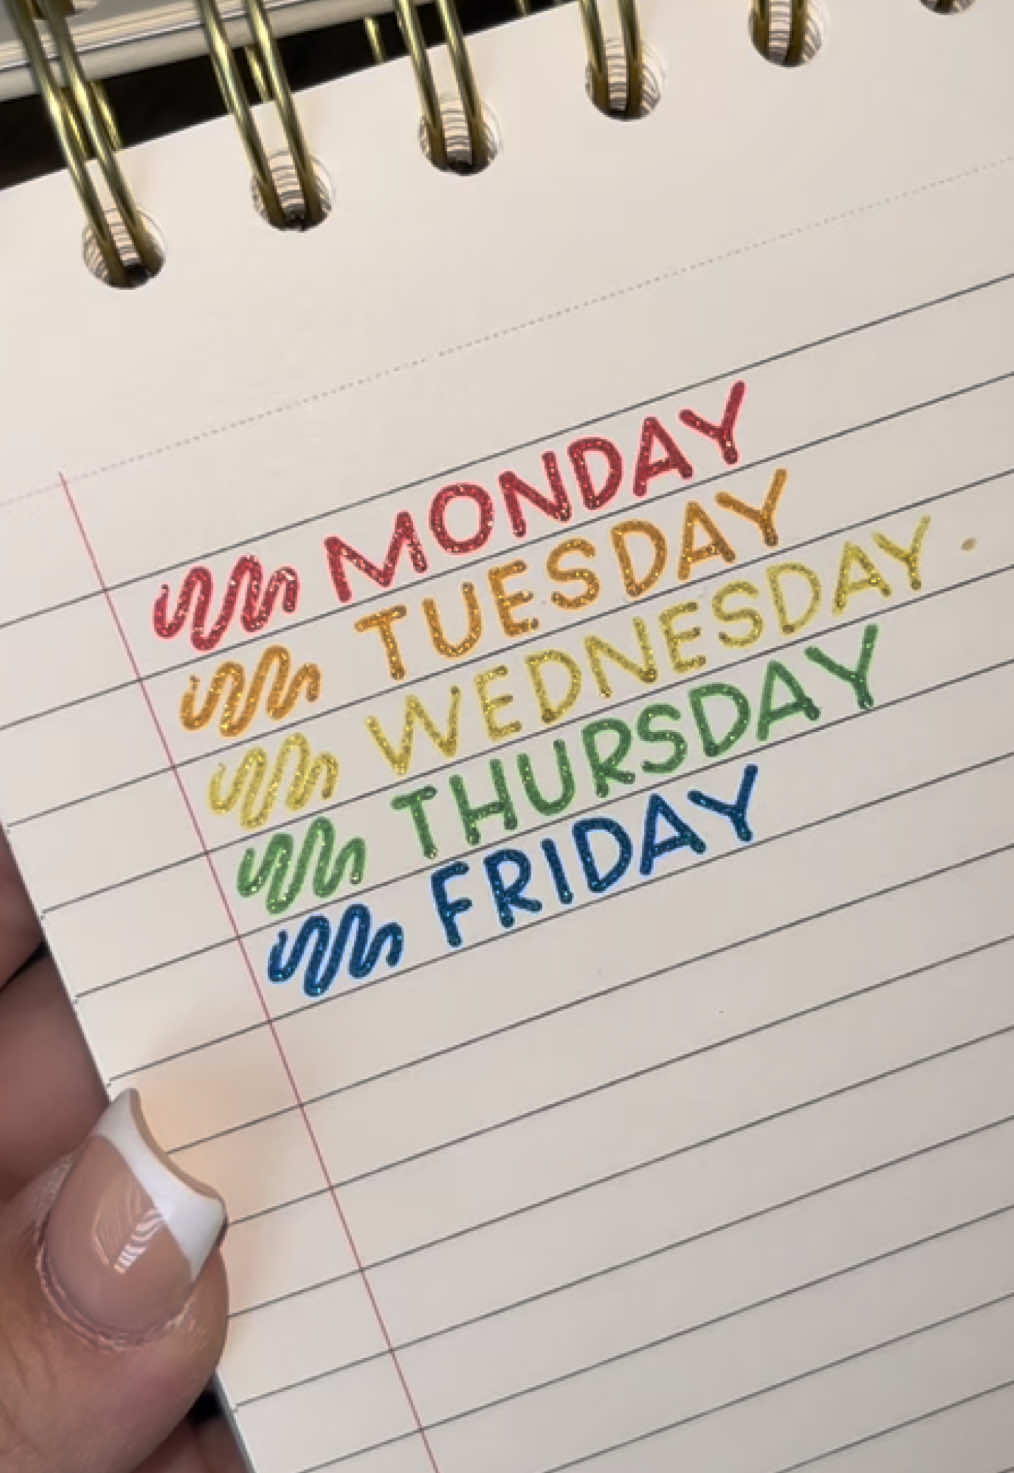 MONDAY
TUESDAY
WEDNESDAY
THURSDAY
FRIDAY